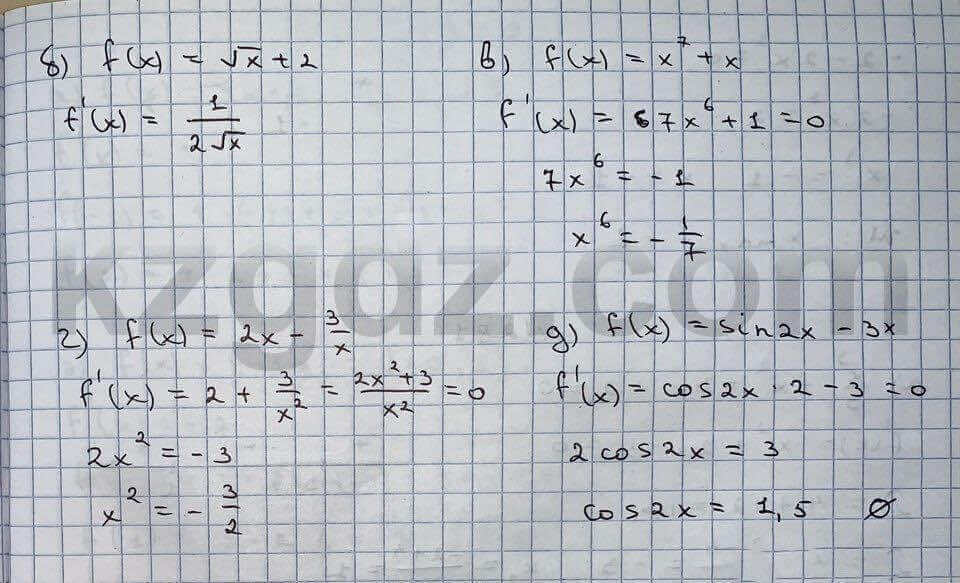 б) f(x) = √x + 2
f'(x) = 1/(2√x)
в) f(x) = x⁷ + x
f'(x) = 67x⁶ + 1 = 0
7x⁶ = - 1
x⁶ = - 1/7
г) f(x) = 2x - 3/x
f'(x) = 2 + 3/x² = (2x² + 3)/x² = 0
2x² = - 3
x² = - 3/2
д) f(x) = sin2x - 3x
f'(x) = cos2x · 2 - 3 = 0
2 cos2x = 3
cos2x = 1,5 ∅
kzgdz.com